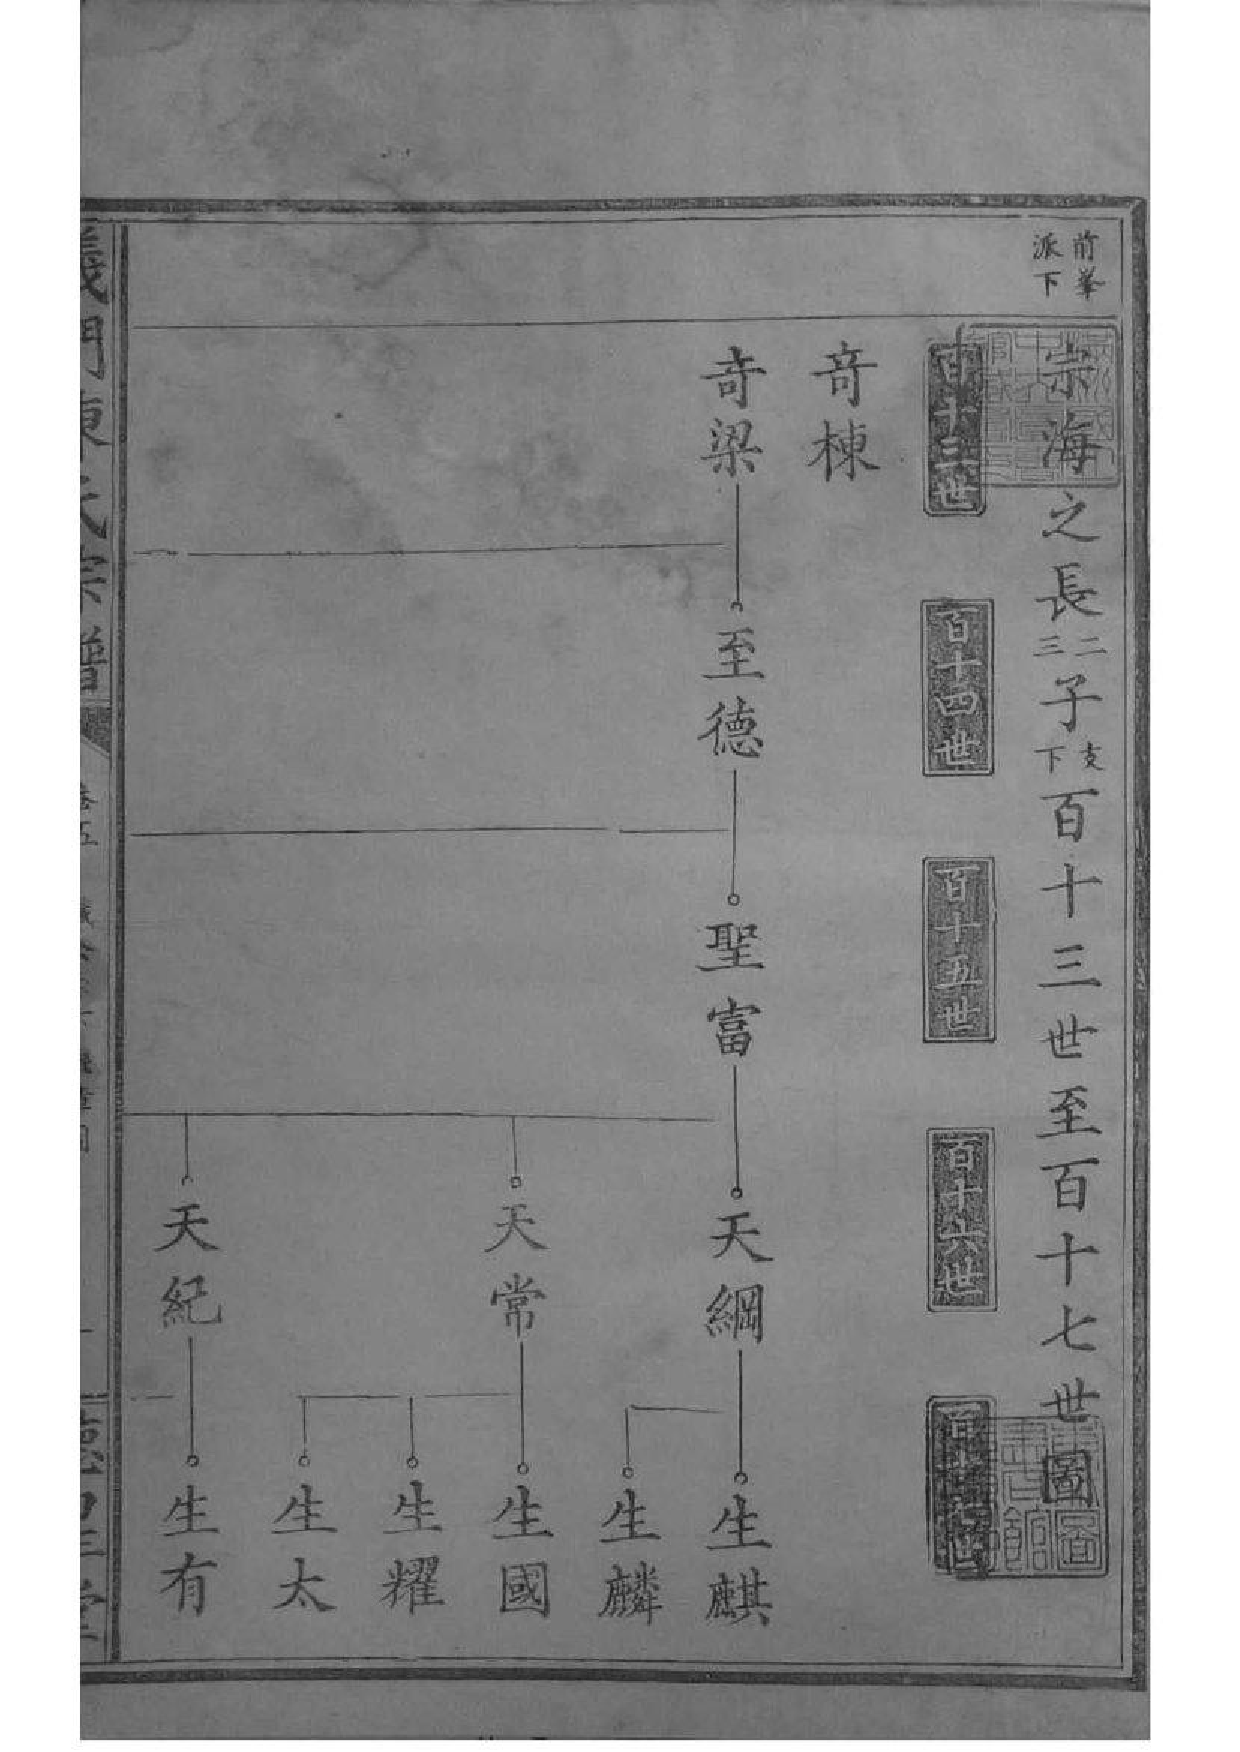 前峯
派下
崇海之長二三子支下百十三世至百十七世圖
百十三世
百十四世
百十五世
百十六世
百十七世
奇棟
奇梁
至德
聖富
天綱
生麒
生麟
天常
生國
生耀
生太
天紀
生有
義門陳氏宗譜
卷五